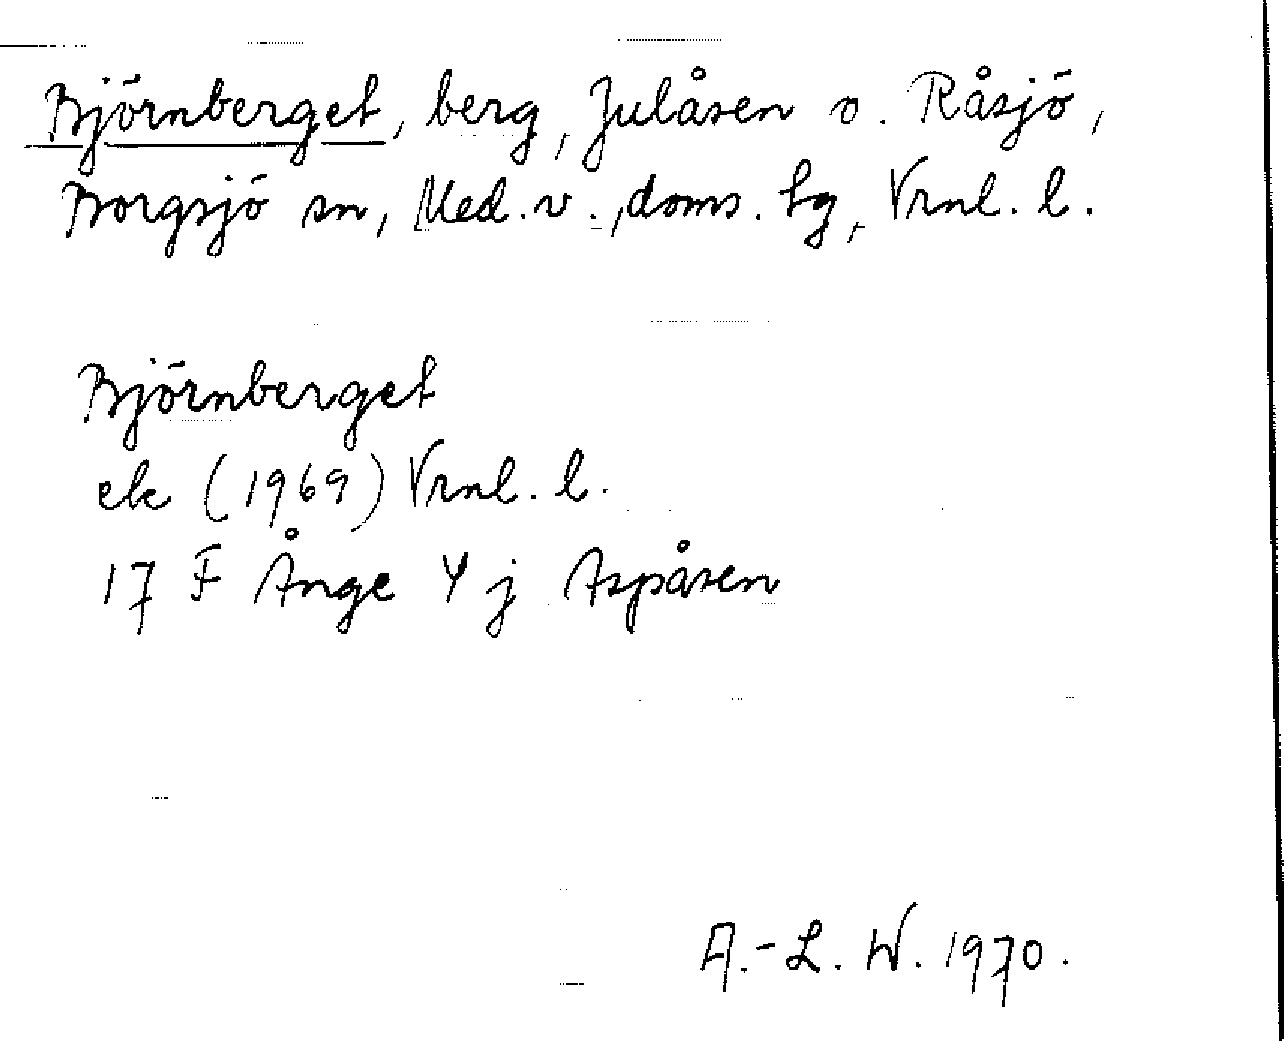 Björnberget, berg, Julåsen o. Råsjö,
Borgsjö sn, Med. v., doms. hg, Vrnl. l.
Björnberget
ek (1969) Vrnl. l.
17 F Ånge Y j Aspåsen
A.-L. W. 1970.